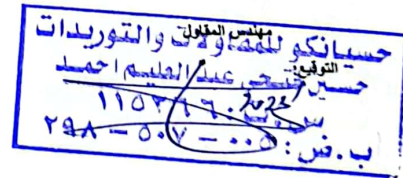 مهندس المقاول
حسيانكو للمقاولات والتوريدات
التوقيع:
حسين فتحى عبد العليم احمد
س.ت:
ب.ض: ٠٠٥ - ٥٠٧ - ٢٩٨